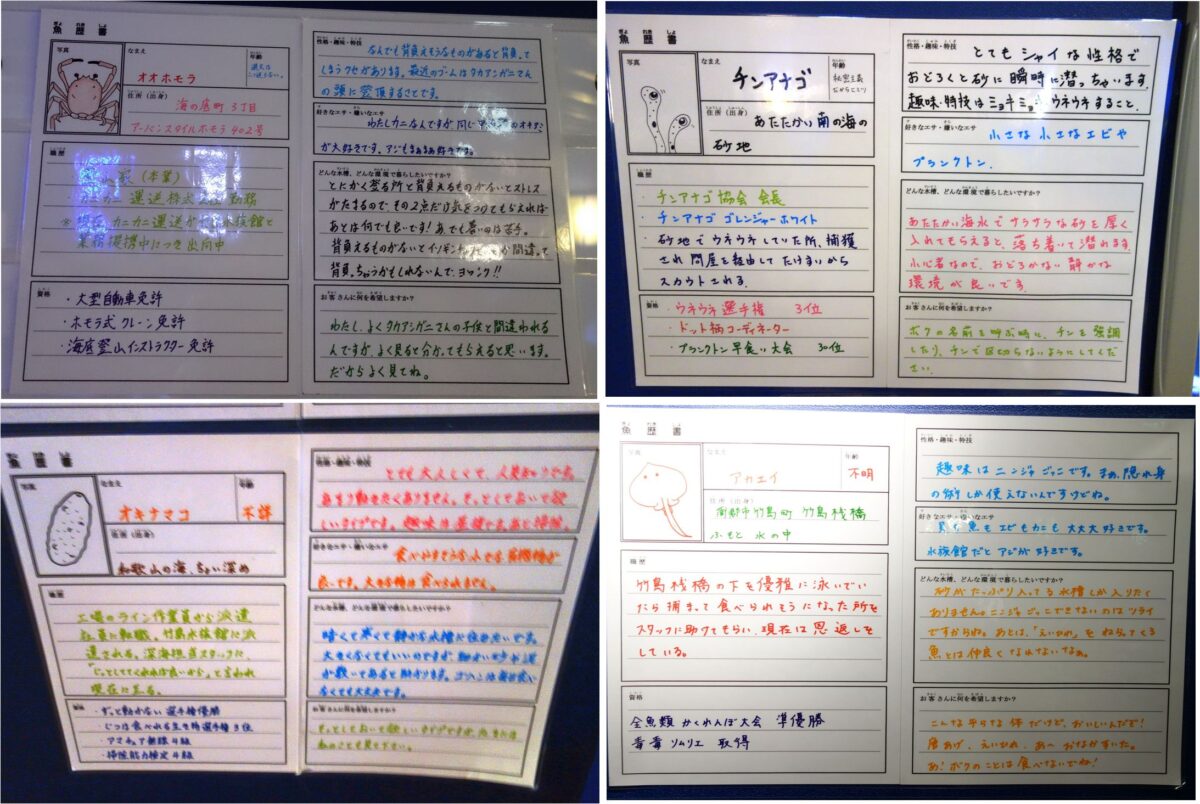 魚歴書
写真
なまえ
オオホモラ
年齢
住所（出身）
海の底町 3丁目
アーバンスタイルホモラ 402号
職歴
（本業）
・カニカニ運送株式 勤務
カニカニ運送が 水族館と
業務提携中につき出向中
資格
・大型自動車免許
・ホモラ式クレーン免許
・海底登山インストラクター免許
性格・趣味・特技
なんでも背負えそうなものがあると背負って
しまうクセがあります。最近のブームはタカアシガニさん
の頭に登頂することです。
好きなエサ・嫌いなエサ
わたしカニなんですが、同じ
が大好きです。アジもまぁまぁ好きです。
どんな水槽、どんな環境で暮らしたいですか？
とにかく登る所と背負えるものがないとストレス
がたまるので、その2点だけ気をつけてもらえれば
あとは何でも良いです！あ、でも暑いのは苦手。
背負えるものがないとイソギン 間違って
背負っちゃうかもしれないんで、ヨロシク!!
お客さんに何を希望しますか？
わたし、よくタカアシガニさんの子供と間違われる
んですが、よく見ると分かってもらえると思います。
だからよく見てね。
魚歴書
写真
なまえ
チンアナゴ
年齢
秘密主義
だからヒミツ
住所（出身）
あたたかい南の海の
砂地
職歴
・チンアナゴ協会 会長
・チンアナゴ ゴレンジャーホワイト
・砂地でウネウネしていた所、捕獲
され問屋を経由してたけすいから
スカウトされる。
資格
・ウネウネ選手権 3位
・ドット柄コーディネーター
・プランクトン早食い大会 30位
性格・趣味・特技
とてもシャイな性格で
おどろくと砂に瞬時に潜っちゃいます。
趣味・特技はニョキニョキ、ウネウネすること。
好きなエサ・嫌いなエサ
小さな小さなエビや
プランクトン。
どんな水槽、どんな環境で暮らしたいですか？
あたたかい海水でサラサラな砂を厚く
入れてもらえると、落ち着いて潜れます。
小心者なので、おどろかない静かな
環境が良いです。
お客さんに何を希望しますか？
ボクの名前を呼ぶ時に、チンを強調
したり、チンで区切らないようにしてくだ
さい。
魚歴書
写真
なまえ
オキナマコ
年齢
不詳
住所（出身）
和歌山の海、ちょい深め
職歴
工場のライン作業員から派遣
社員に転職。竹島水族館に派
遣される。深海担当スタッフに、
「じっとしててくれれば良いから」と言われ
現在に至る。
資格
・ずっと動かない選手権優勝
・じつは食べれる生き物選手権3位
・アマチュア無線4級
・掃除能力検定4級
性格・趣味・特技
とても大人しくて、人見知りです。
あまり動きたくありません。そっとしておいて欲
しいタイプです。趣味は 、あと掃除。
好きなエサ・嫌いなエサ
良いです。大きな物は食べられません。
どんな水槽、どんな環境で暮らしたいですか？
暗くて寒くて静かな水槽に住みたいです。
大きくなくてもいいのですが、細かい砂や泥
が敷いてあると助かります。ゴハンは毎日食べ
なくても大丈夫です。
お客さんに何を希望しますか？
そっとしておいて欲しいタイプですが、たまには
私のことも見て下さい。
魚歴書
写真
なまえ
アカエイ
年齢
不明
住所（出身）
蒲郡市竹島町 竹島桟橋
ふもと 水の中
職歴
竹島桟橋の下を優雅に泳いでい
たら捕まって食べられそうになった所を
スタッフに助けてもらい、現在は恩返しを
している。
資格
全魚類かくれんぼ大会 準優勝
毒毒ソムリエ 取得
性格・趣味・特技
趣味はニンジャごっこです。まぁ、隠れ身
の術しか使えないんですけどね。
好きなエサ・嫌いなエサ
貝も魚もエビもカニも大大大好きです。
水族館だとアジが好きです。
どんな水槽、どんな環境で暮らしたいですか？
砂がたっぷり入ってる水槽しか入りたく
ありません。ニンジャごっこできないのはツライ
ですからね。あとは、「えいひれ」をねらってくる
魚とは仲良くなれないなぁ。
お客さんに何を希望しますか？
こんな平らな体だけど、おいしいんだぞ！
唐あげ、えいひれ、あ〜おなかすいた。
あ！ボクのことは食べないでね！